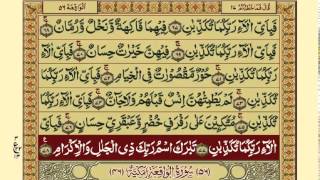 قال فما خطبكم ٢٧ الواقعة ٥٦
فَبِاَیِّ اٰلَآءِ رَبِّكُمَا تُكَذِّبٰنِ فِیْهِمَا فَاكِهَةٌ وَّنَخْلٌ وَّرُمَّانٌ
فَبِاَیِّ اٰلَآءِ رَبِّكُمَا تُكَذِّبٰنِ فِیْهِنَّ خَیْرٰتٌ حِسَانٌ
فَبِاَیِّ اٰلَآءِ رَبِّكُمَا تُكَذِّبٰنِ حُوْرٌ مَّقْصُوْرٰتٌ فِی الْخِیَامِ
فَبِاَیِّ اٰلَآءِ رَبِّكُمَا تُكَذِّبٰنِ لَمْ یَطْمِثْهُنَّ اِنْسٌ قَبْلَهُمْ وَلَا جَآنٌّ
فَبِاَیِّ اٰلَآءِ رَبِّكُمَا تُكَذِّبٰنِ مُتَّكِـِٕیْنَ عَلٰی رَفْرَفٍ خُضْرٍ وَّعَبْقَرِیٍّ حِسَانٍ فَبِاَیِّ
اٰلَآءِ رَبِّكُمَا تُكَذِّبٰنِ تَبٰرَكَ اسْمُ رَبِّكَ ذِی الْجَلٰلِ وَالْاِكْرَامِ
(٥٦) سُوْرَةُ الْوَاقِعَةِ مَكِّیَّةٌ (٤٦)